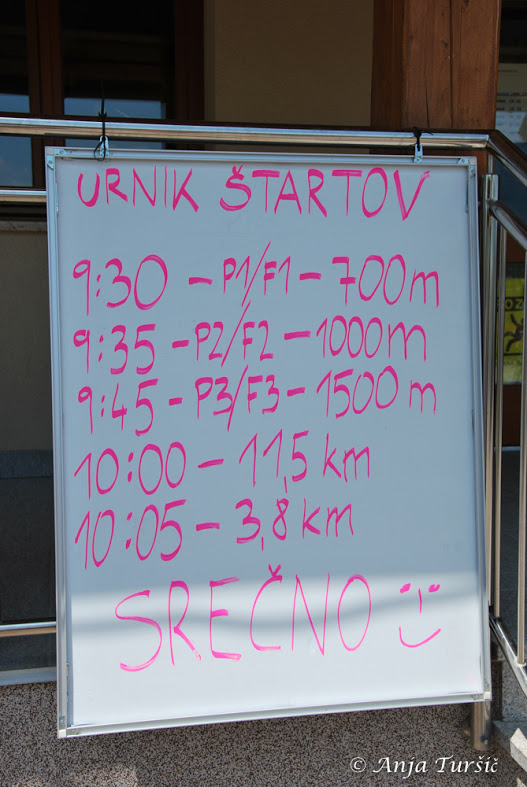 URNIK ŠTARTOV
9:30 – P1/F1 – 700m
9:35 – P2/F2 – 1000m
9:45 – P3/F3 – 1500 m
10:00 – 11,5 km
10:05 – 3,8 km
SREČNO
© Anja Turšič